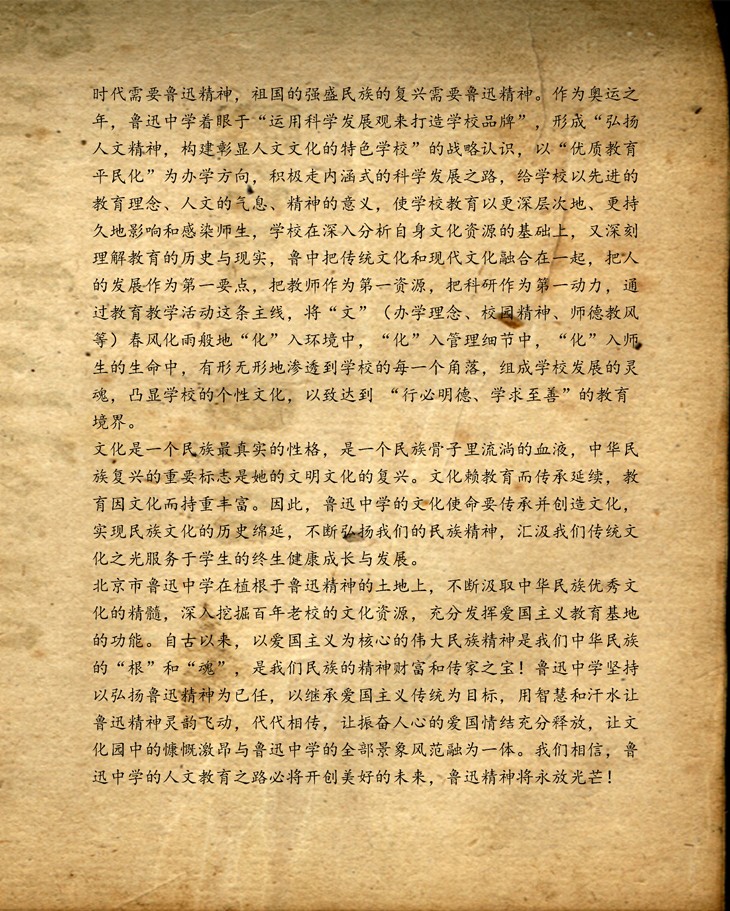 时代需要鲁迅精神，祖国的强盛民族的复兴需要鲁迅精神。作为奥运之
年，鲁迅中学着眼于“运用科学发展观来打造学校品牌”，形成“弘扬
人文精神，构建彰显人文文化的特色学校”的战略认识，以“优质教育
平民化”为办学方向，积极走内涵式的科学发展之路，给学校以先进的
教育理念、人文的气息、精神的意义，使学校教育以更深层次地、更持
久地影响和感染师生，学校在深入分析自身文化资源的基础上，又深刻
理解教育的历史与现实，鲁中把传统文化和现代文化融合在一起，把人
的发展作为第一要点，把教师作为第一资源，把科研作为第一动力，通
过教育教学活动这条主线，将“文”（办学理念、校园精神、师德教风
等）春风化雨般地“化”入环境中，“化”入管理细节中，“化”入师
生的生命中，有形无形地渗透到学校的每一个角落，组成学校发展的灵
魂，凸显学校的个性文化，以致达到 “行必明德、学求至善”的教育
境界。
文化是一个民族最真实的性格，是一个民族骨子里流淌的血液，中华民
族复兴的重要标志是她的文明文化的复兴。文化赖教育而传承延续，教
育因文化而持重丰富。因此，鲁迅中学的文化使命要传承并创造文化，
实现民族文化的历史绵延，不断弘扬我们的民族精神，汇汲我们传统文
化之光服务于学生的终生健康成长与发展。
北京市鲁迅中学在植根于鲁迅精神的土地上，不断汲取中华民族优秀文
化的精髓，深入挖掘百年老校的文化资源，充分发挥爱国主义教育基地
的功能。自古以来，以爱国主义为核心的伟大民族精神是我们中华民族
的“根”和“魂”，是我们民族的精神财富和传家之宝！鲁迅中学坚持
以弘扬鲁迅精神为已任，以继承爱国主义传统为目标，用智慧和汗水让
鲁迅精神灵韵飞动，代代相传，让振奋人心的爱国情结充分释放，让文
化园中的慷慨激昂与鲁迅中学的全部景象风范融为一体。我们相信，鲁
迅中学的人文教育之路必将开创美好的未来，鲁迅精神将永放光芒！